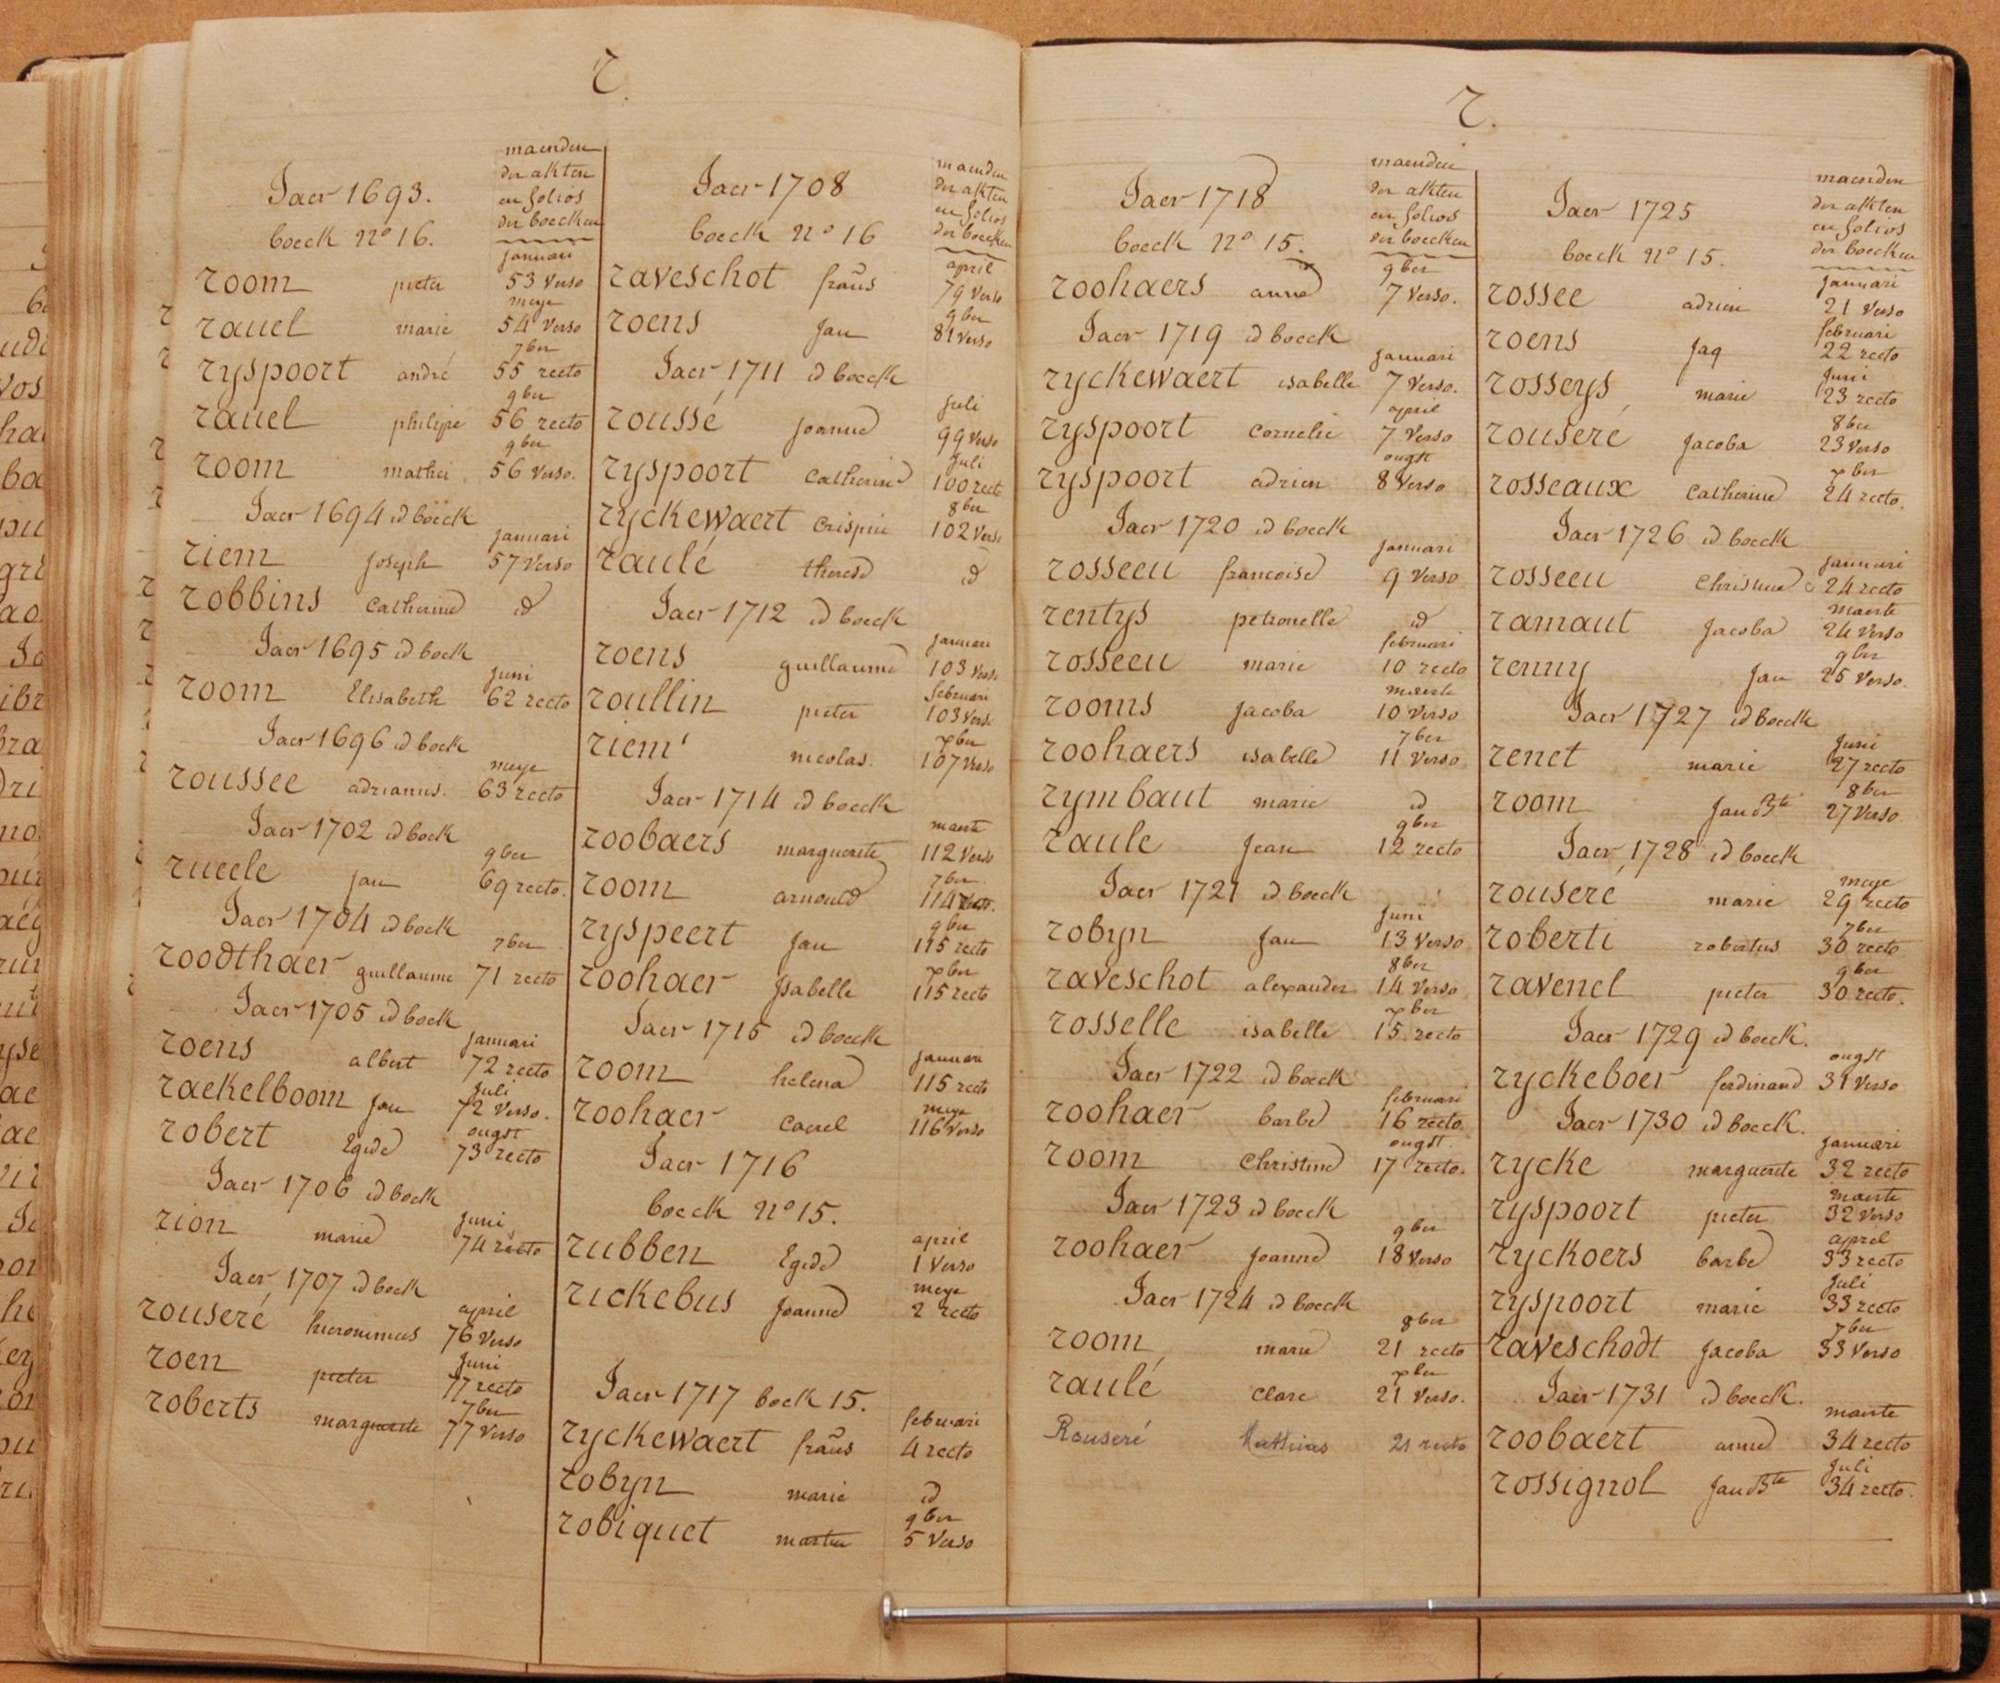 r.
Jaer 1693.
boeck nº 16.
maenden
der akten
en folios
der boecken
januari
room pieter 53 verso
meye
rauel marie 54 verso
7ber
ryspoort andré 55 recto
9ber
rauel philipe 56 recto
9ber
room mathei 56 verso.
Jaer 1694 id boeck
januari
riem joseph 57 verso
robbins catherine id
Jaer 1695 id boek
juni
room Elisabeth 62 recto
Jaer 1696 id boek
meye
roussee adrianus. 63 recto
Jaer 1702 id boek
9ber
rueele jan 69 recto.
Jaer 1704 id boek
7ber
roodthaer guillaume 71 recto
Jaer 1705 id boek
januari
roens albert 72 recto
juli
raekelboom jan 72 verso.
ougst
robert Egide 73 recto
Jaer 1706 id boek
juni
rion marie 74 recto
Jaer 1707 id boek
april
rouseré hieronimus 76 verso
juni
roen pieter 77 recto
7ber
roberts marguerite 77 verso
Jaer 1708
boeck nº 16
maenden
der akten
en folios
der boecken
april
raveschot frañs 79 verso
9ber
roens jan 81 verso
Jaer 1711 id boeck
juli
roussé joanne 99 verso
juli
ryspoort catherine 100 rect
8ber
ryckewaert crispin 102 vers
raulé therese id
Jaer 1712 id boeck
januari
roens guillaume 103 vers
februari
roullin pieter 103 vers
xber
riem nicolas. 107 verso
Jaer 1714 id boeck
maerte
roobaers marguerite 112 verso
7ber
room arnould 114
9ber
ryspeert jan 115 recto
xber
roohaer Isabelle 115 recto
Jaer 1715 id boeck
januari
room helena 115 recto
meye
roohaer carel 116 verso
Jaer 1716
boeck nº 15.
april
rubben Egide 1 verso
meye
rickebus joanne 2 recto
Jaer 1717 boek 15.
februari
ryckewaert frañs 4 recto
robyn marie id
9ber
robiquet martin 5 verso
r.
Jaer 1718
boeck nº 15.
maenden
der akten
en folios
der boecken
9ber
roohaers anne 7 verso.
Jaer 1719 id boeck
januari
ryckewaert isabelle 7 verso.
april
ryspoort cornelie 7 verso
ougst
ryspoort adrien 8 verso
Jaer 1720 id boeck
januari
rosseeu francoise 9 verso
rentys petronelle id
februari
rosseeu marie 10 recto
maerte
rooms jacoba 10 verso
7ber
roohaers isabelle 11 verso
rymbaut marie id
9ber
raule jean 12 recto
Jaer 1721 id boeck
juni
robyn jan 13 verso
8ber
raveschot alexander 14 verso
xber
rosselle isabelle 15 recto
Jaer 1722 id boeck
februari
roohaer barbe 16 recto
ougst.
room christine 17 recto.
Jaer 1723 id boeck
9ber
roohaer joanne 18 verso
Jaer 1724 id boeck
8ber
room marie 21 recto
xber
raulé clare 21 verso.
Rouseré Mathias 21 recto
Jaer 1725
boeck nº 15.
maenden
der akten
en folios
der boecken
januari
rossee adrien 21 verso
februari
roens jaq 22 recto
juni
rosseys marie 23 recto
8ber
rouseré jacoba 23 verso
xber
rosseaux catherine 24 recto.
Jaer 1726 id boeck
januari
rosseeu christine 24 recto
maerte
ramaut jacoba 24 verso
9ber
renny jan 25 verso.
Jaer 1727 id boeck
juni
renet marie 27 recto
8ber
room jan Bte 27 verso
Jaer 1728 id boeck
meye
rouseré marie 29 recto
7ber
roberti robertus 30 recto
9ber
ravenel pieter 30 recto.
Jaer 1729 id boeck.
ougst
ryckeboer ferdinand 31 verso
Jaer 1730 id boeck.
januari
rycke marguerite 32 recto
maerte
ryspoort pieter 32 verso
aprel
ryckoers barbe 33 recto
juli
ryspoort marie 33 recto
7ber
raveschodt jacoba 33 verso
Jaer 1731 id boeck.
maerte
roobaert anne 34 recto
juli
rossignol jan Bte 34 recto.